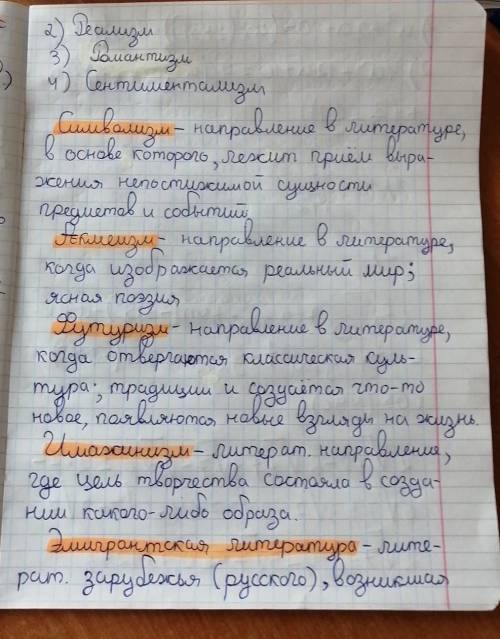 2) Реализм
3) Романтизм
4) Сентиментализм
Символизм - направление в литературе,
в основе которого, лежит приём выра-
жения непостижимой сущности
предметов и событий.
Акмеизм - направление в литературе,
когда изображается реальный мир;
ясная поэзия
Футуризм - направление в литературе,
когда отвергаются классическая куль-
тура; традиции и создаётся что-то
новое, появляются новые взгляды на жизнь.
Имажинизм - литерат. направление,
где цель творчества состояла в созда-
нии какого-либо образа.
Эмигрантская литература - лите-
рат. зарубежья (русского), возникшая